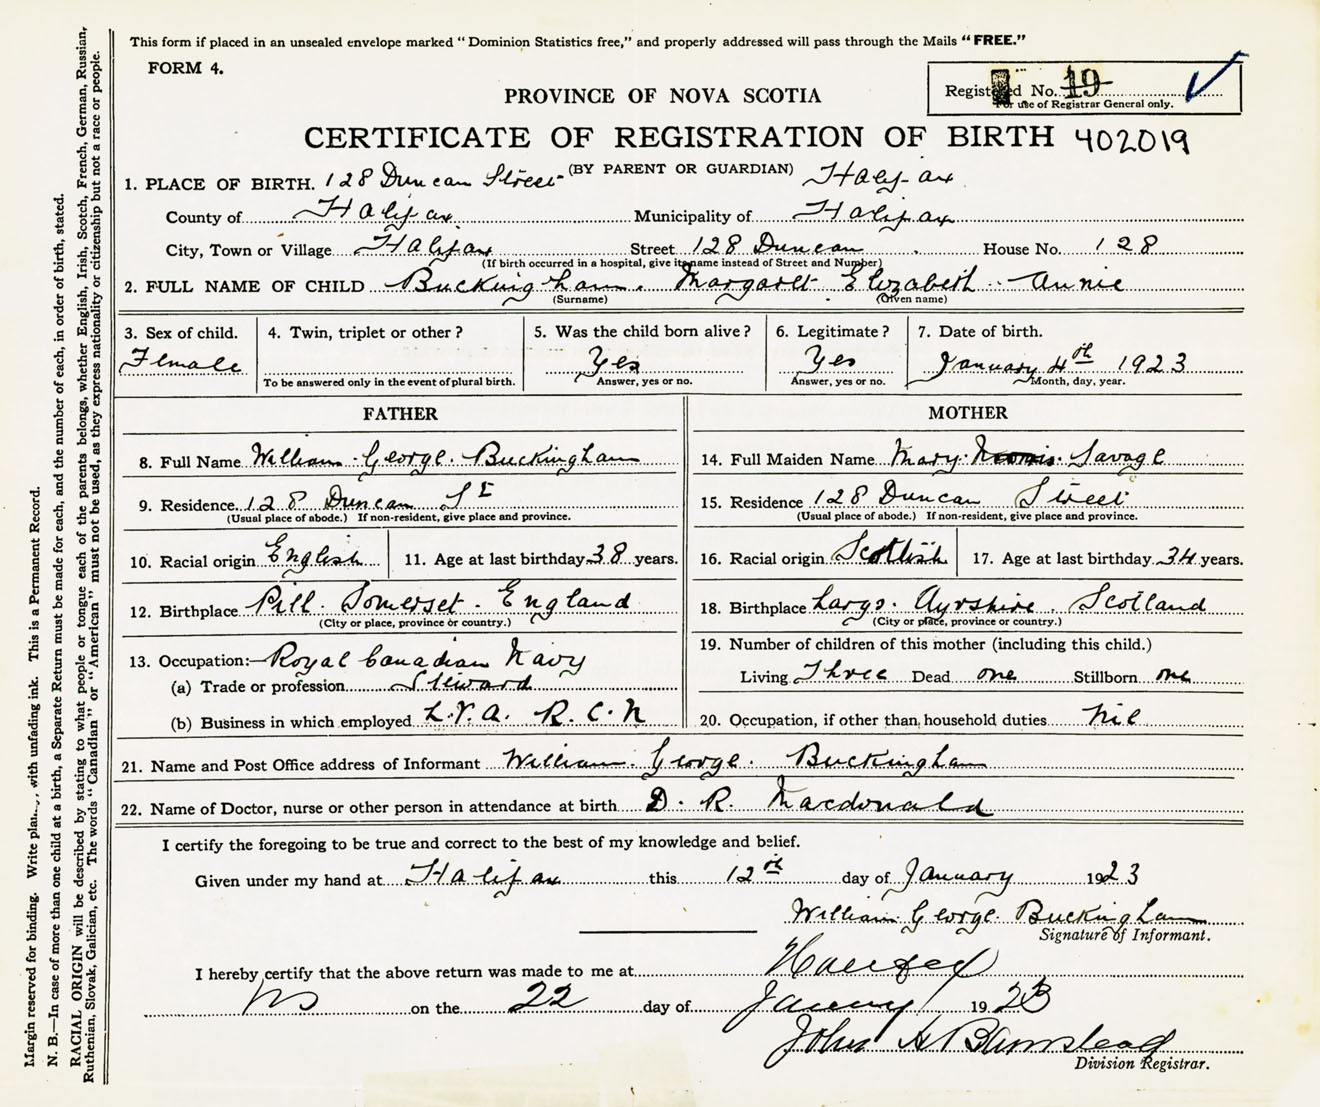 This form if placed in an unsealed envelope marked "Dominion Statistics free," and properly addressed will pass through the Mails "FREE."
FORM 4.
Registered No. 19
For use of Registrar General only.
PROVINCE OF NOVA SCOTIA
CERTIFICATE OF REGISTRATION OF BIRTH 402019
(BY PARENT OR GUARDIAN)
1. PLACE OF BIRTH. 128 Duncan Street Halifax
County of Halifax Municipality of Halifax
City, Town or Village Halifax Street 128 Duncan House No. 128
(If birth occurred in a hospital, give its name instead of Street and Number)
2. FULL NAME OF CHILD Buckingham. Margaret Elizabeth Annie
(Surname) (Given name)
3. Sex of child. 4. Twin, triplet or other? 5. Was the child born alive? 6. Legitimate? 7. Date of birth.
Female Yes Yes January 4th 1923
To be answered only in the event of plural birth. Answer, yes or no. Answer, yes or no. Month, day, year.
FATHER
8. Full Name William George Buckingham
9. Residence 128 Duncan St
(Usual place of abode.) If non-resident, give place and province.
10. Racial origin English 11. Age at last birthday 38 years.
12. Birthplace Pill. Somerset. England
(City or place, province or country.)
13. Occupation: Royal Canadian Navy
(a) Trade or profession Steward
(b) Business in which employed L.V.A. R.C.N
MOTHER
14. Full Maiden Name Mary Savage
15. Residence 128 Duncan Street
(Usual place of abode.) If non-resident, give place and province.
16. Racial origin Scottish 17. Age at last birthday 34 years.
18. Birthplace Largs. Ayrshire. Scotland
(City or place, province or country.)
19. Number of children of this mother (including this child.)
Living Three Dead one Stillborn one
20. Occupation, if other than household duties Nil
21. Name and Post Office address of Informant William. George. Buckingham
22. Name of Doctor, nurse or other person in attendance at birth D. R. Macdonald
I certify the foregoing to be true and correct to the best of my knowledge and belief.
Given under my hand at Halifax this 12th day of January 1923
William George Buckingham
Signature of Informant.
I hereby certify that the above return was made to me at Halifax
NS on the 22 day of January 1923
John A Barnstead
Division Registrar.
Margin reserved for binding. Write with unfading ink. This is a Permanent Record.
N. B.—In case of more than one child at a birth, a Separate Return must be made for each, and the number of each, in order of birth, stated.
RACIAL ORIGIN will be described by stating to what people or tongue each of the parents belongs, whether English, Irish, Scotch, French, German, Russian,
Ruthenian, Slovak, Galician, etc. The words "Canadian" or "American" must not be used, as they express nationality or citizenship but not a race or people.